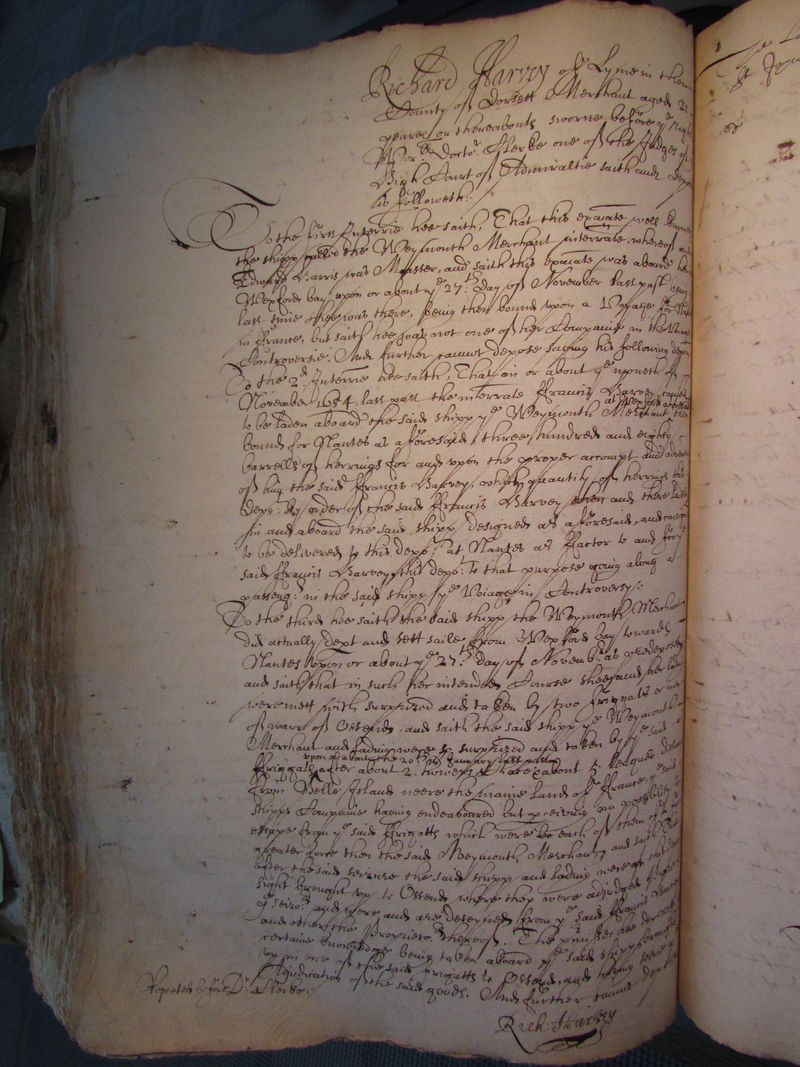 Richard Harvey of Lyme in the
County of Dorsett Merchant aged 2
yeares or thereabouts sworne before ye
Worll Doctor Clerke one of the Judges of
high Court of Admiraltie saith and
as followeth:-
To the first Interrie hee saith, That this exãiate well
the shipp called the Weymouth Merchant interrate, whereof
Edward Harris was Master, and saith this exãiate was aboard her
Wexford bay upon or about ye 27th Day of November last past
last time shee was there, being then bound upon a Voyage for
in ffrance, but saith hee was not one of her Companie in the
Controversie. And further cannot depose saving his following
To the 2d Interrie hee saith, That in or about ye moneth of
November 1654 last past the interrate ffrancis Harvey caused
at Wexford
to be laden aboard the said shipp ye Weymouth Merchant
bound for Nantes as aforesaid three hundred and eighty
barrells of herrings for and upon the proper accompt and
of him the said ffrancis Harvey, which quantity of herrings this
dept: by order of the said ffrancis Harvey then and there
in and aboard the said shipp designed as aforesaid, and
to be delivered to this dept: at Nantes as ffactor to and for
said ffrancis Harvey, this dept: to that purpose going along a
passengr: in the said shipp ye Voiage in Controversy:
To the third hee saith the said shipp the Weymouth Merchant
did actually dept and sett saile from Wexford bay towards
Nantes upon or about ye 27th day of Novembr: as predeposed
and saith that in such her intended Course shee and her lading
were mett with surprized and taken by two ffriggats or men
of warr of Ostend, and saith the said shipp ye Weymouth
Merchant and lading were so surprized and taken by ye said
upon or about the 20th of January last past
ffriggats after about 2. howers chase about 5 leagues
from Belle Island neere the maine land of ffrance, ye said
shipps Companie having endeavoured but p̱ceiving no possibility to
escape from ye said ffriggats which were each of them of
greater force then the said Weymouth Merchant, and saith
after the said seizure the said shipp and lading were
sight brought up to Ostend where they were adjudged
ye seizors: and were and are deteyned from ye said ffrancis Harvey
and others the Proprietors thereof. The p̱misses hee deposeth
certaine knowledge being taken aboard ye said shipp brought
up in one of the said ffriggatts to Ostend, and having seene
Adjudication of the said goods. And further cannot depose
Repeated before Dr: Clerke.
Rich: Harvey